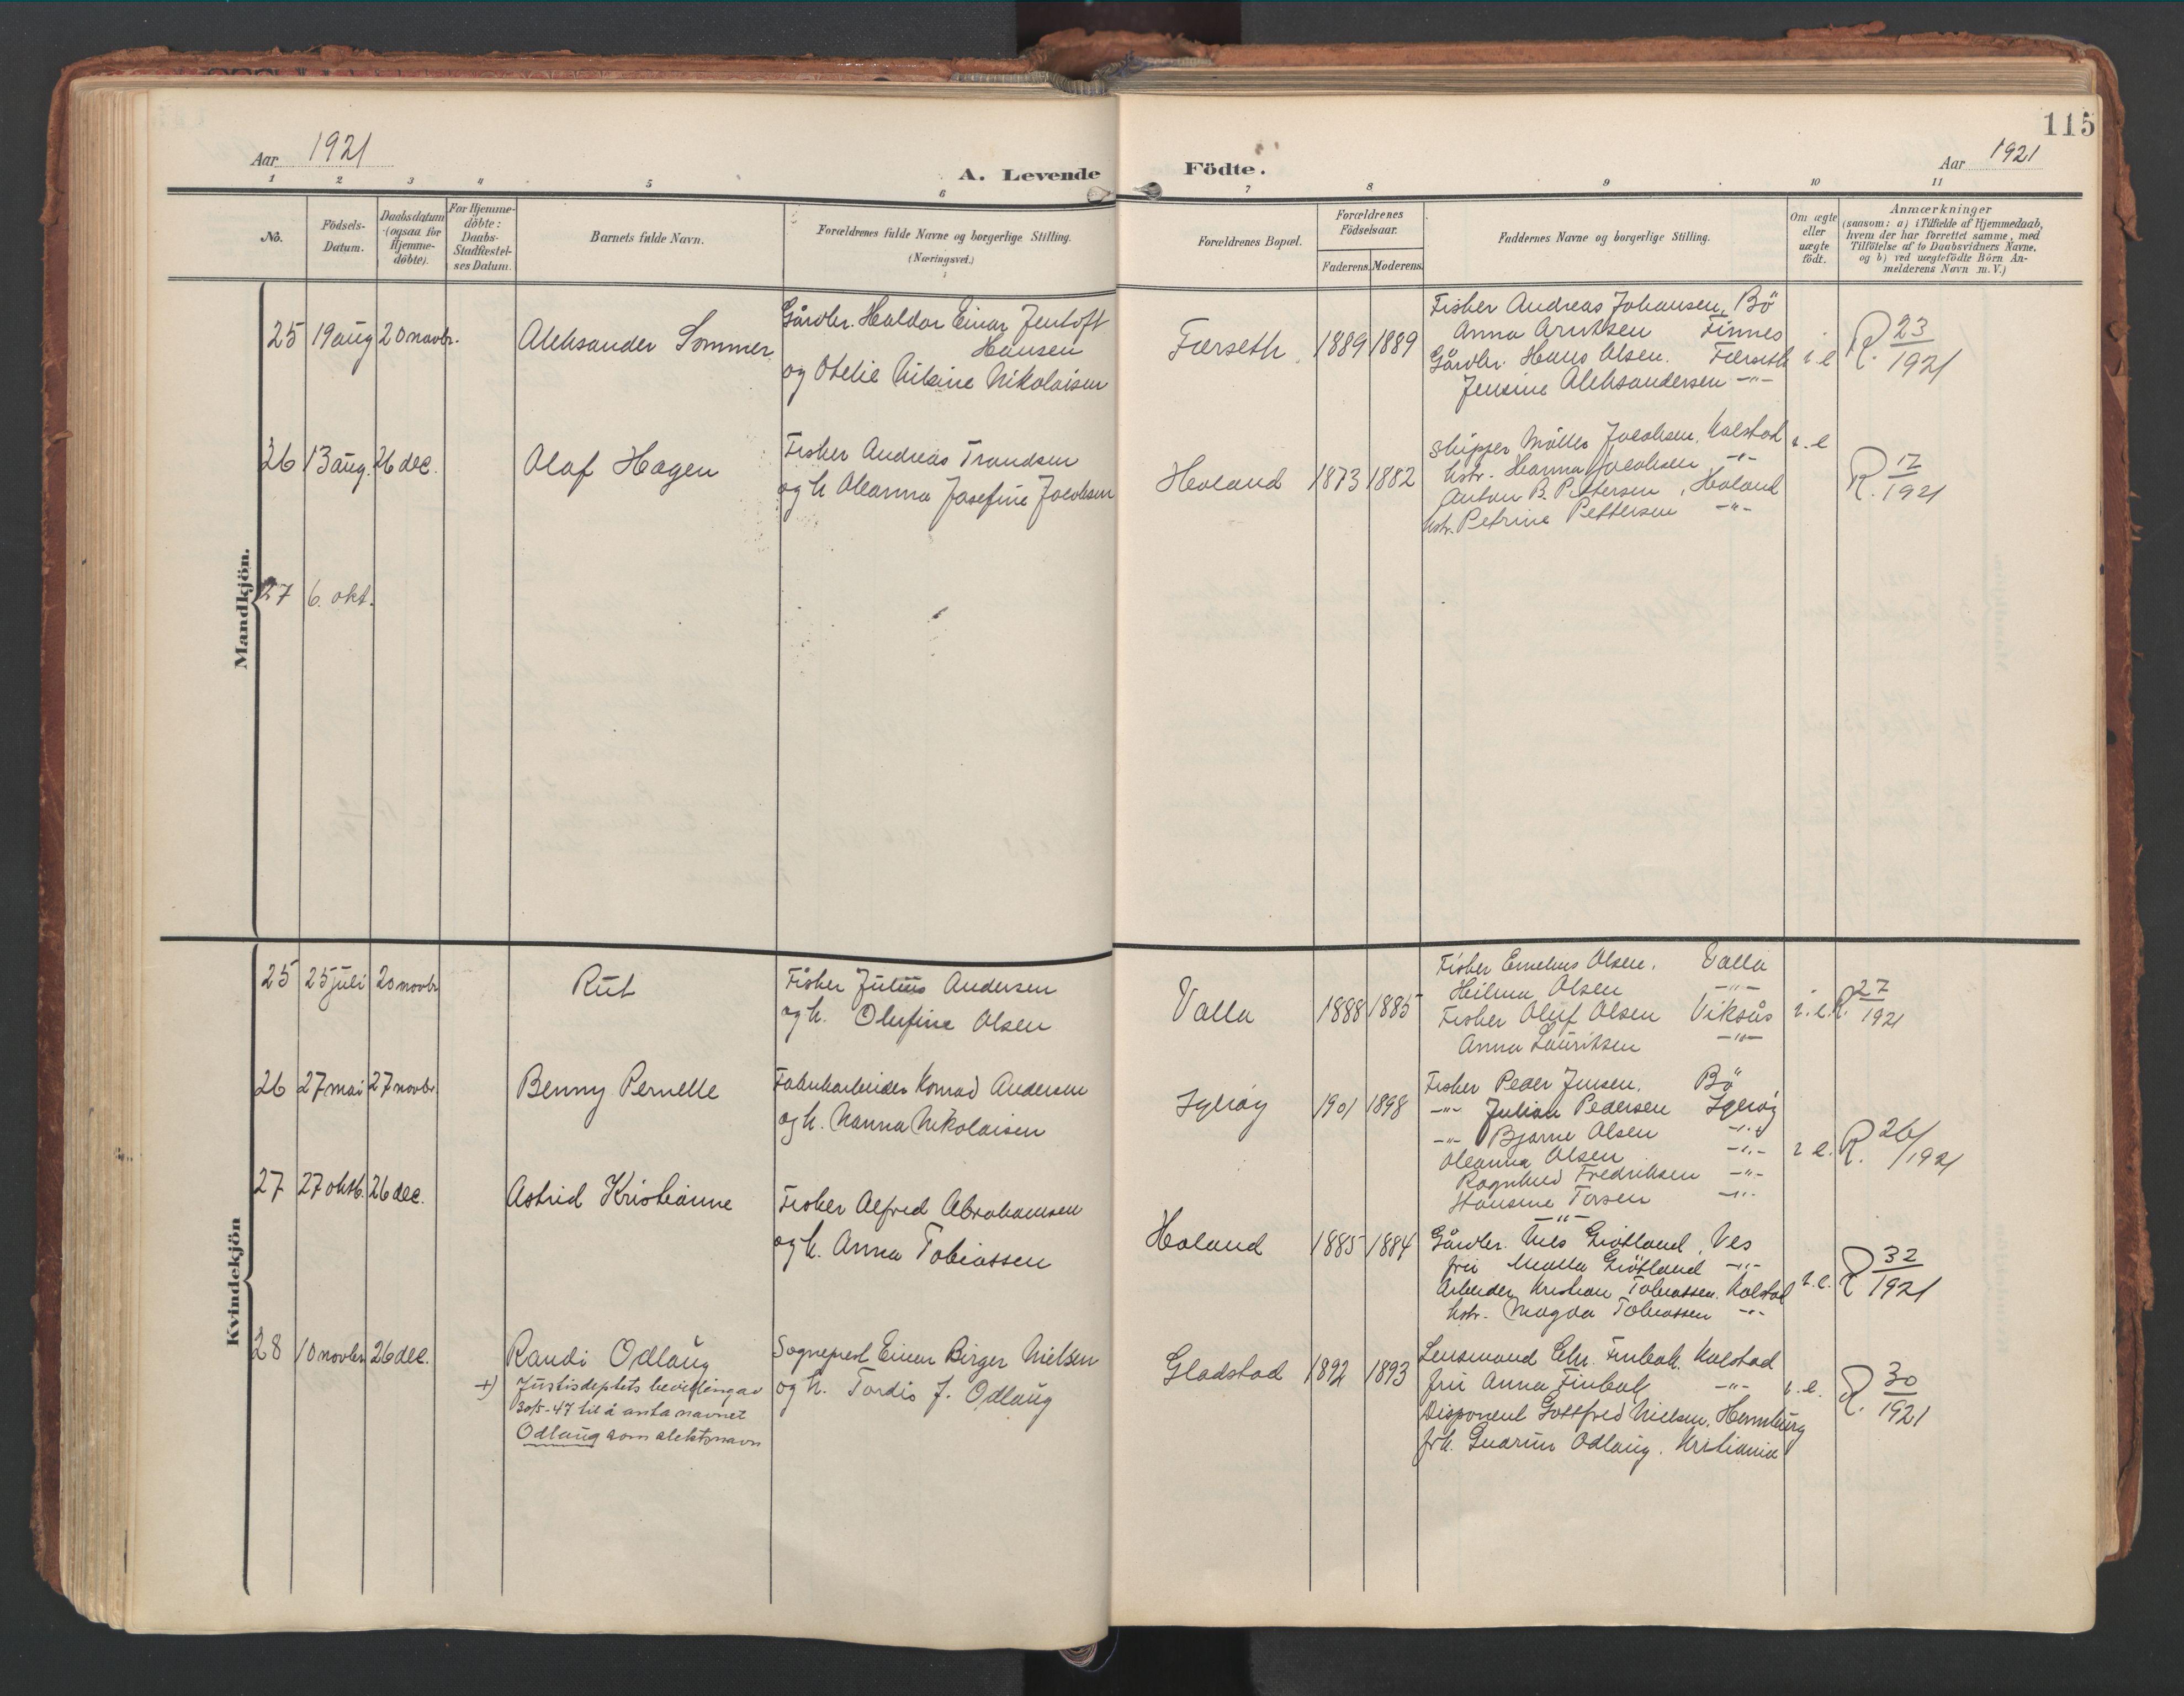 115
Aar 1921
A. Levende Födte.
Aar 1921
1 2 3 4 5 6 7 8 9 10 11
No.
Födsels-
Datum.
Daabsdatum
(ogsaa for
Hjemme-
döbte).
For Hjemme-
döbte:
Daabs-
Stadfæstel-
ses Datum.
Barnets fulde Navn.
Forældrenes fulde Navne og borgerlige Stilling.
(Næringsvei.)
Forældrenes Bopæl.
Forældrenes
Födselsaar.
Faderens. Moderens.
Faddernes Navne og borgerlige Stilling.
Om ægte
eller
uægte
födt.
Anmærkninger
(saasom: a) i Tilfælde af Hjemmedaab,
hvem der har forrettet samme, med
Tilföielse af to Daabsvidners Navne,
og b) ved uægtefödte Börn An-
melderens Navn m. V.)
Mandkjön.
25 19 aug 20 novbr. Aleksander Sommer
Gårdbr. Haldor Einar Jentoft
Hansen
og Otelie Nilsine Nikolaisen
Færseth 1889 1889
Fisker Andreas Johansen, Bö
Anna Arntsen Finnes
Gårdbr. Hans Olsen. Færseth
Jensine Aleksandersen -"-
i e R. 23/1921
26 13 aug. 26 dec. Olaf Hagen
Fisker Andreas Trondsen
og h Oleanna Josefine Jacobsen
Havland 1873 1882
Skipper Jacobsen, Kolstad
hstr. Hanna Jacobsen -"-
Anton B. Pettersen, Haland
hstr. Petrine Pettersen -"-
i. e R. 17/1921
27 6. okt.
Kvindekjön
25 25 juli 20 novbr Rut
Fisker Julius Andersen
og h. Olufine Olsen
Valla 1888 1885
Fisker Olsen. Valla
Hilma Olsen -"-
Fisker Oluf Olsen Viksås
Anna Lauritsen -"-
i. e. R. 27/1921
26 27 mai 27 novbr. Benny Pernelle
Fabrikarbeider Konrad Andersen
og h. Nanna Nikolaisen
Igeröy 1901 1898
Fisker Peder Jensen, Bö
-"- Julian Pedersen Igeröy
-"- Bjarne Olsen -"-
Oleanna Olsen -"-
Ragnhild Fredriksen -"-
Hansine Torsen -"-
-"-
i e. R. 26/1921
27 27 oktb. 26 dec. Astrid Kristianne
Fisker Alfred Abrahamsen
og h. Anna Tobiassen
Haland 1885 1884
Gårdbr. Nils Grötland, Ves
fru Malla Grötland -"-
Arbeider Kristian Tobiassen. Kolstad
hstr. Magda Tobiassen -"-
i. e. R 32/1921
28 10 novbr 26 dec. Randi Odlaug
+) Justisdeptets bevilling av
30/5-47 til å anta navnet
Odlaug som slektsnavn
Sogneprest Einar Birger Nielsen
og h. Tordis J. Odlaug
Gladstad 1892 1893
Lensmand Chr. Finbak. Kolstad
fru Anna Finbak -"-
Disponent Gottfred Nielsen, Hamburg
frk. Gudrun Odlaug. Kristiania
i. e. R. 30/1921